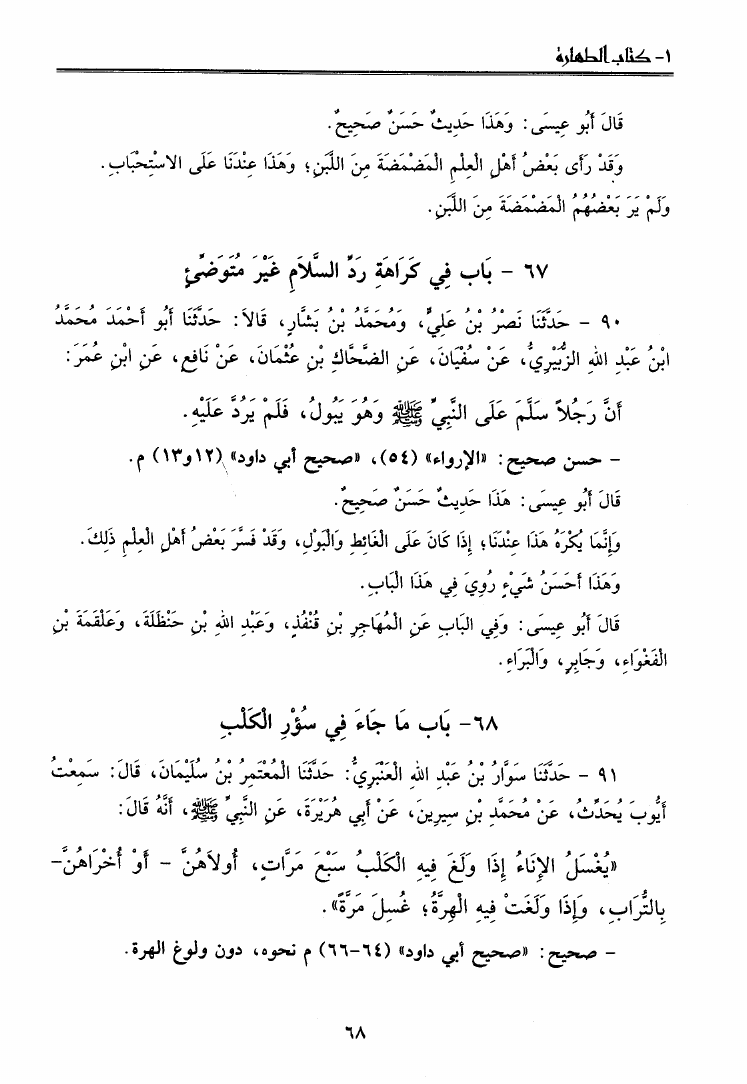 ١- كتاب الطهارة
قَالَ أَبُو عِيسَى: وَهَذَا حَدِيثٌ حَسَنٌ صَحِيحٌ.
وَقَدْ رَأَى بَعْضُ أَهْلِ الْعِلْمِ الْمَضْمَضَةَ مِنَ اللَّبَنِ؛ وَهَذَا عِنْدَنَا عَلَى الاسْتِحْبَابِ.
وَلَمْ يَرَ بَعْضُهُمُ الْمَضْمَضَةَ مِنَ اللَّبَنِ.
٦٧ - بَاب فِي كَرَاهَةِ رَدِّ السَّلَامِ غَيْرَ مُتَوَضِّئٍ
٩٠ - حَدَّثَنَا نَصْرُ بْنُ عَلِيٍّ، وَمُحَمَّدُ بْنُ بَشَّارٍ، قَالَا: حَدَّثَنَا أَبُو أَحْمَدَ مُحَمَّدُ
ابْنُ عَبْدِ اللهِ الزُّبَيْرِيُّ، عَنْ سُفْيَانَ، عَنِ الضَّحَّاكِ بْنِ عُثْمَانَ، عَنْ نَافِعٍ، عَنِ ابْنِ عُمَرَ:
أَنَّ رَجُلاً سَلَّمَ عَلَى النَّبِيِّ ﷺ وَهُوَ يَبُولُ، فَلَمْ يَرُدَّ عَلَيْهِ.
- حسن صحيح: «الإرواء» (٥٤)، «صحيح أبي داود» (١٢ و١٣) م.
قَالَ أَبُو عِيسَى: هَذَا حَدِيثٌ حَسَنٌ صَحِيحٌ.
وَإِنَّمَا يُكْرَهُ هَذَا عِنْدَنَا؛ إِذَا كَانَ عَلَى الْغَائِطِ وَالْبَوْلِ، وَقَدْ فَسَّرَ بَعْضُ أَهْلِ الْعِلْمِ ذَلِكَ.
وَهَذَا أَحْسَنُ شَيْءٍ رُوِيَ فِي هَذَا الْبَابِ.
قَالَ أَبُو عِيسَى: وَفِي الْبَابِ عَنِ الْمُهَاجِرِ بْنِ قُنْفُذٍ، وَعَبْدِ اللهِ بْنِ حَنْظَلَةَ، وَعَلْقَمَةَ بْنِ
الْفَغْوَاءِ، وَجَابِرٍ، وَالْبَرَاءِ.
٦٨- بَاب مَا جَاءَ فِي سُؤْرِ الْكَلْبِ
٩١ - حَدَّثَنَا سَوَّارُ بْنُ عَبْدِ اللهِ الْعَنْبَرِيُّ: حَدَّثَنَا الْمُعْتَمِرُ بْنُ سُلَيْمَانَ، قَالَ: سَمِعْتُ
أَيُّوبَ يُحَدِّثُ، عَنْ مُحَمَّدِ بْنِ سِيرِينَ، عَنْ أَبِي هُرَيْرَةَ، عَنِ النَّبِيِّ ﷺ، أَنَّهُ قَالَ:
«يُغْسَلُ الإِنَاءُ إِذَا وَلَغَ فِيهِ الْكَلْبُ سَبْعَ مَرَّاتٍ، أُولاَهُنَّ - أَوْ أُخْرَاهُنَّ-
بِالتُّرَابِ، وَإِذَا وَلَغَتْ فِيهِ الْهِرَّةُ؛ غُسِلَ مَرَّةً».
- صحيح: «صحيح أبي داود» (٦٤-٦٦) م نحوه، دون ولوغ الهرة.
٦٨